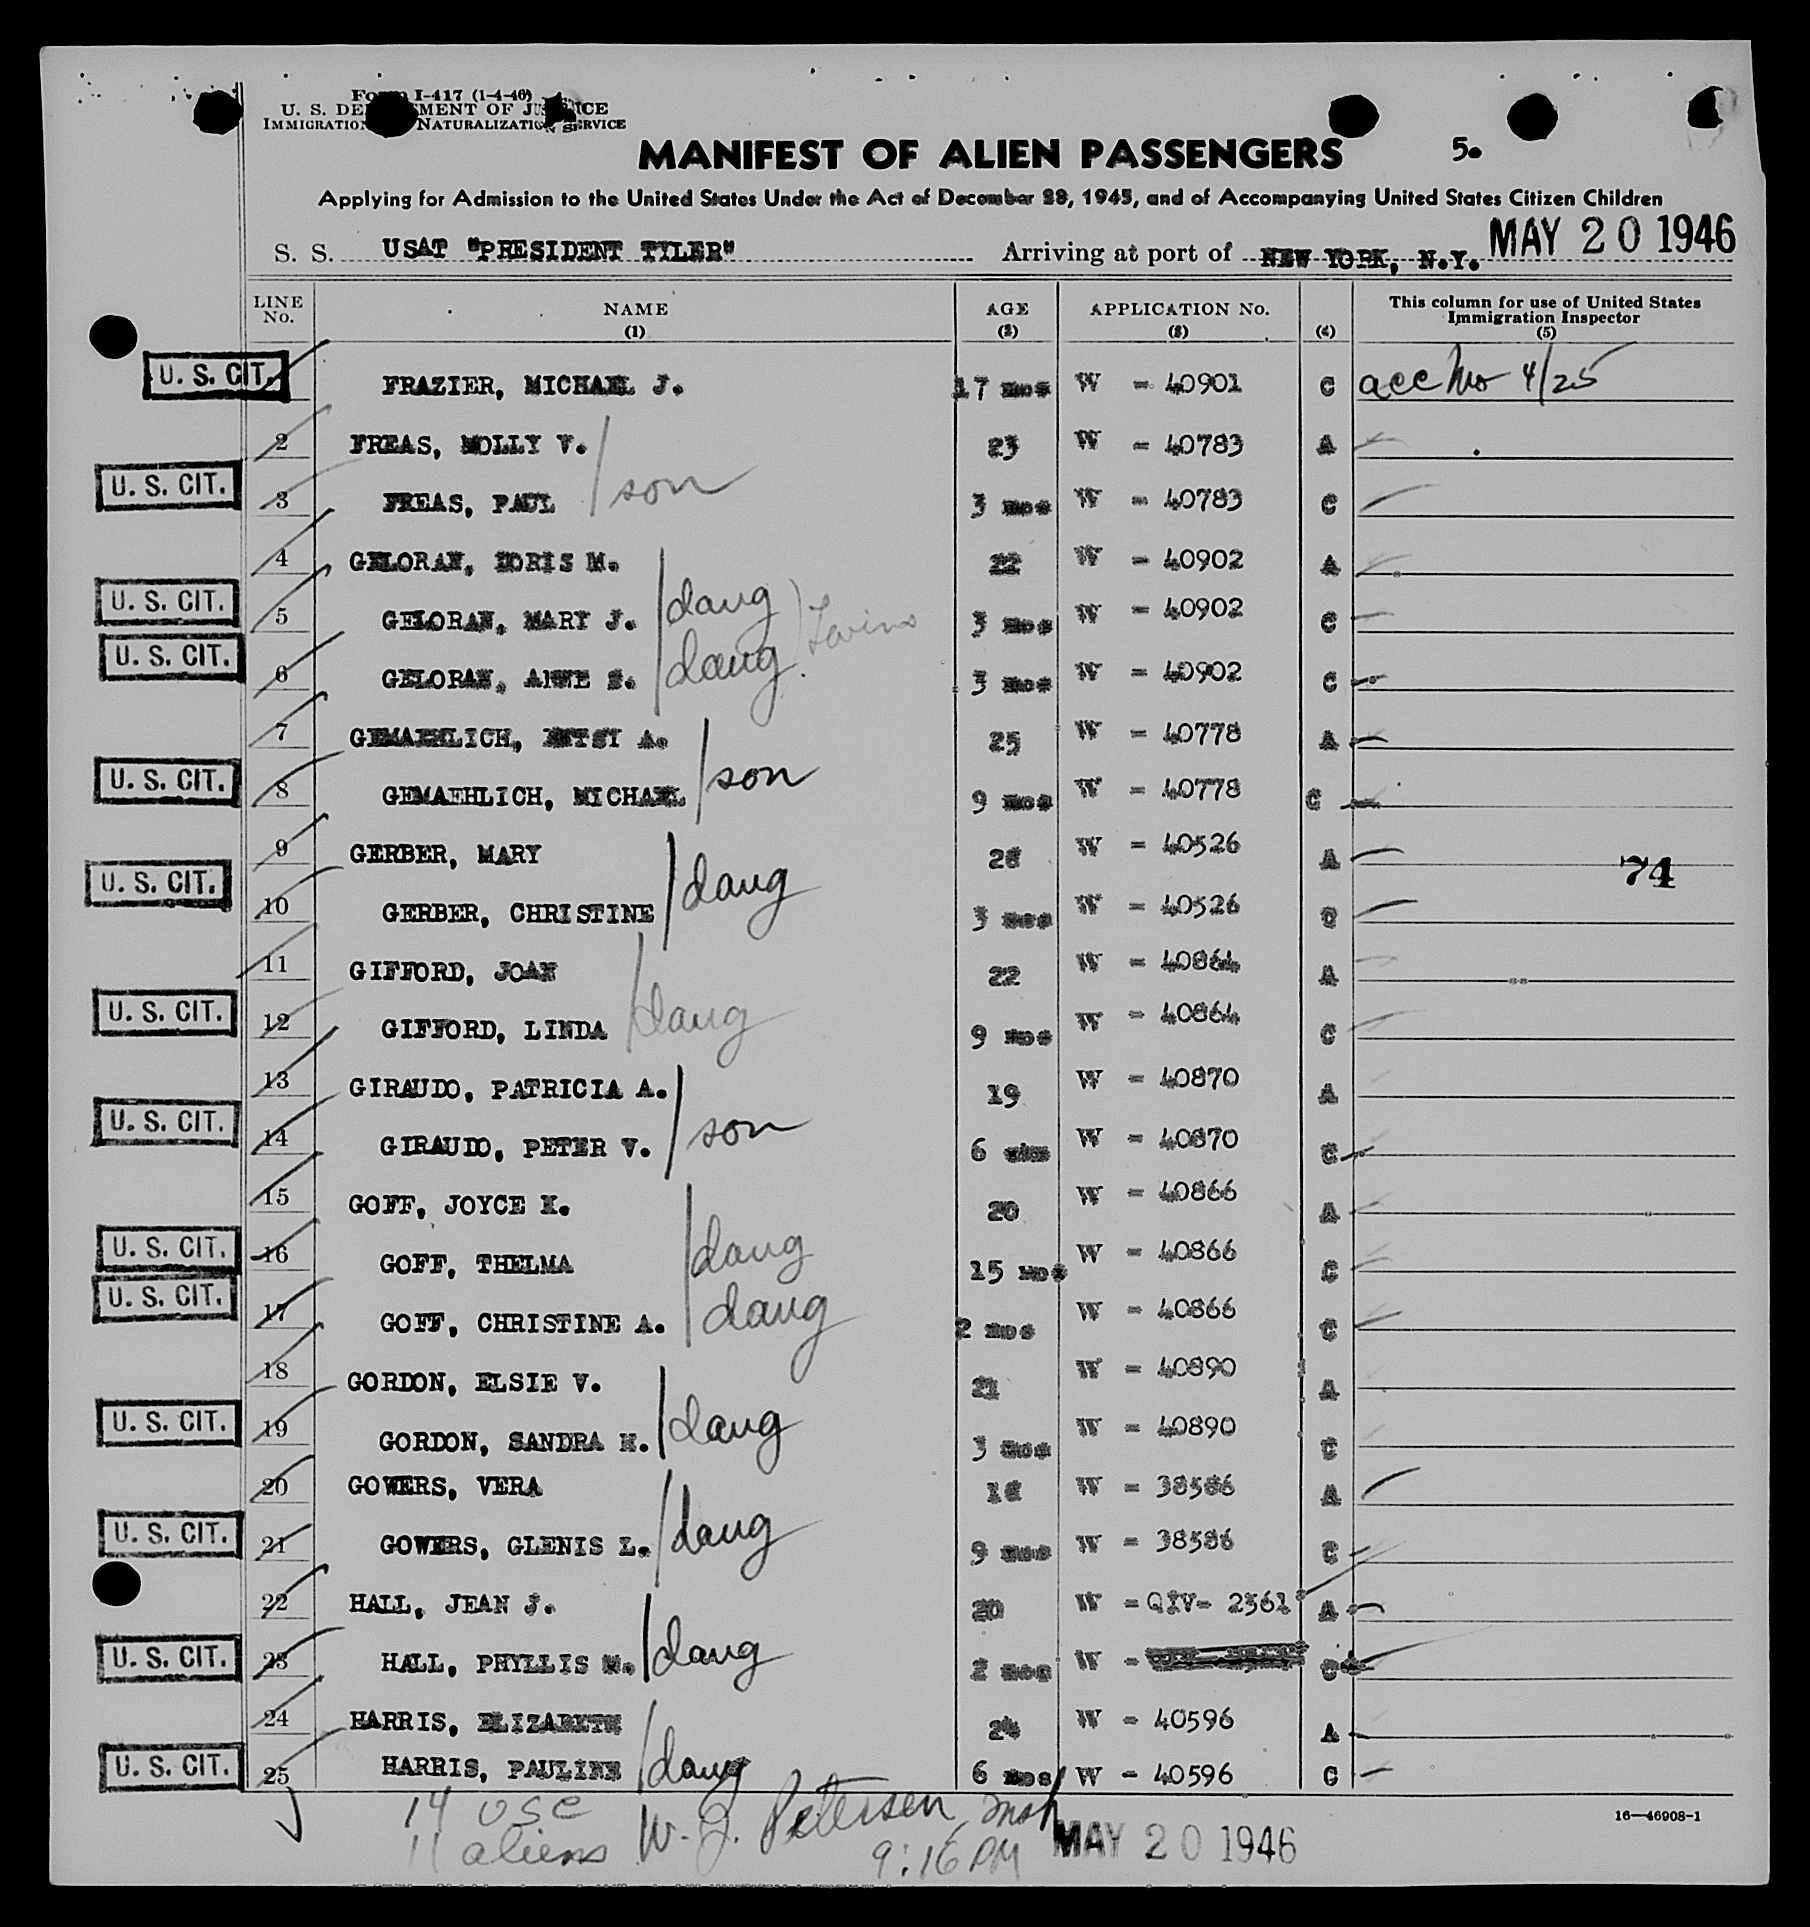 Form I-417 (1-4-46)
U. S. DEPARTMENT OF JUSTICE
IMMIGRATION NATURALIZATION SERVICE
MANIFEST OF ALIEN PASSENGERS 5.
Applying for Admission to the United States Under the Act of December 28, 1945, and of Accompanying United States Citizen Children
S. S. USAT "PRESIDENT TYLER" Arriving at port of NEW YORK, N.Y. MAY 20 1946
LINE No. NAME (1) AGE (2) APPLICATION No. (3) (4) This column for use of United States Immigration Inspector (5)
U. S. CIT. FRAZIER, MICHAEL J. 17 mos W - 40901 C acc Mo 4/25
2 FREAS, MOLLY V. 23 W - 40783 A
U. S. CIT. 3 FREAS, PAUL son 3 mos W - 40783 C
4 GELORAN, DORIS M. 22 W - 40902 A
U. S. CIT. 5 GELORAN, MARY J. daug 3 mos W - 40902 C
Twins
U. S. CIT. 6 GELORAN, ANNE S. daug. 3 mos W - 40902 C
7 GEMAEHLICH, BETSY A. 25 W - 40778 A
U. S. CIT. 8 GEMAEHLICH, MICHAEL son 9 mos W - 40778 C
9 GERBER, MARY 28 W - 40526 A 74
U. S. CIT. 10 GERBER, CHRISTINE daug 3 mos W - 40526 C
11 GIFFORD, JOAN 22 W - 40864 A
U. S. CIT. 12 GIFFORD, LINDA daug 9 mos W - 40864 C
13 GIRAUDO, PATRICIA A. 19 W - 40870 A
U. S. CIT. 14 GIRAUDO, PETER V. son 6 W - 40870 C
15 GOFF, JOYCE K. 20 W - 40866 A
U. S. CIT. 16 GOFF, THELMA daug 15 mos W - 40866 C
U. S. CIT. 17 GOFF, CHRISTINE A. daug 2 mos W - 40866 C
18 GORDON, ELSIE V. 21 W - 40890 A
U. S. CIT. 19 GORDON, SANDRA daug 3 mos W - 40890 C
20 GOWERS, VERA 18 W - 38586 A
U. S. CIT. 21 GOWERS, GLENIS L. daug 9 mos W - 38586 C
22 HALL, JEAN J. 20 W - QIV- 2361 A
U. S. CIT. 23 HALL, PHYLLIS M. daug 2 mos W - C
24 HARRIS, ELIZABETH 24 W - 40596 A
U. S. CIT. 25 HARRIS, PAULINE daug 6 mos W - 40596 C
14 USC W. J. Petersen, 16—46908-1
11 aliens 9:16 PM MAY 20 1946